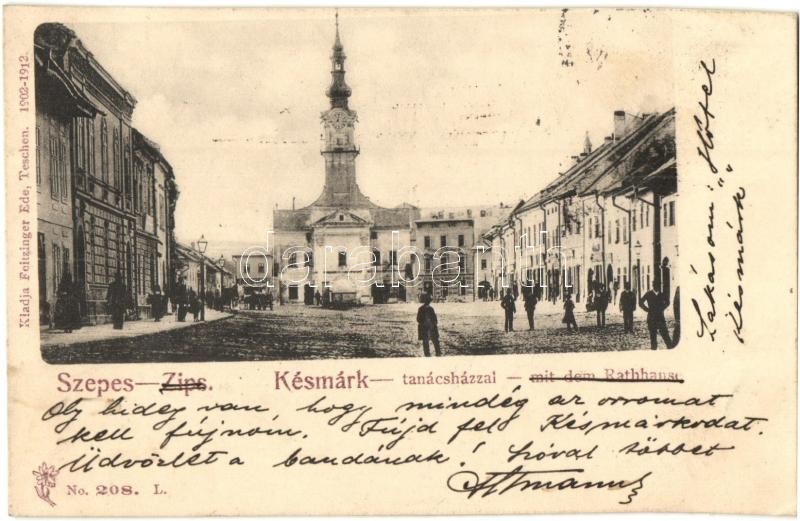 Kladja Feitzinger Ede, Teschen. 1902-1912.
darabanth
Lakásom: Hôtel
"Késmárk"
Szepes—Zips. Késmárk— tanácsházzal — mit dem Rathhause
Oly hideg van, hogy mindég az orromat
kell fújnom. Fújd fel Késmárkodat.
Üdvözlet a bandának! Szóval többet
No. 208. L.